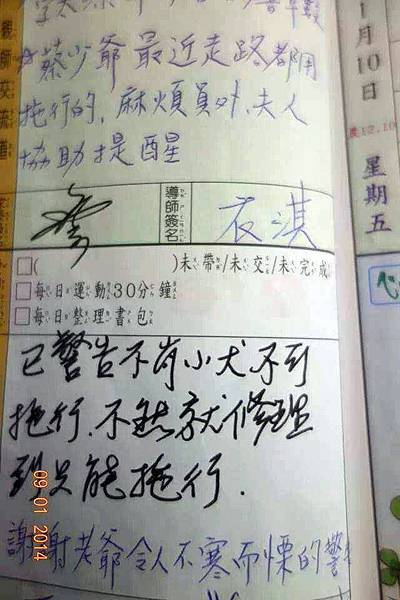 蔡少爺最近走路都用
拖行的,麻煩員外、夫人
協助提醒
導師簽名
衣淇
□( )未帶/未交/未完成
□每日運動30分鐘
□每日整理書包
已警告不肖小犬不可
拖行.不然就修理
到只能拖行.
謝謝老爺令人不寒而慄的警
1月10日
農12.10
星期五
09 01 2014